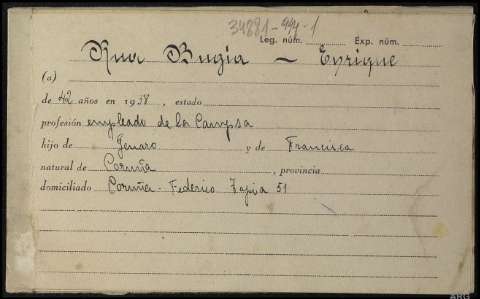 34281-444-1
Leg. núm. Exp. núm.
Rua Bugia - Enrique
(a)
de 42 años en 1938, estado
profesión empleado de la Campsa
hijo de Genaro y de Francisca
natural de Coruña, provincia
domiciliado Coruña - Federico Tapia 51
ARG